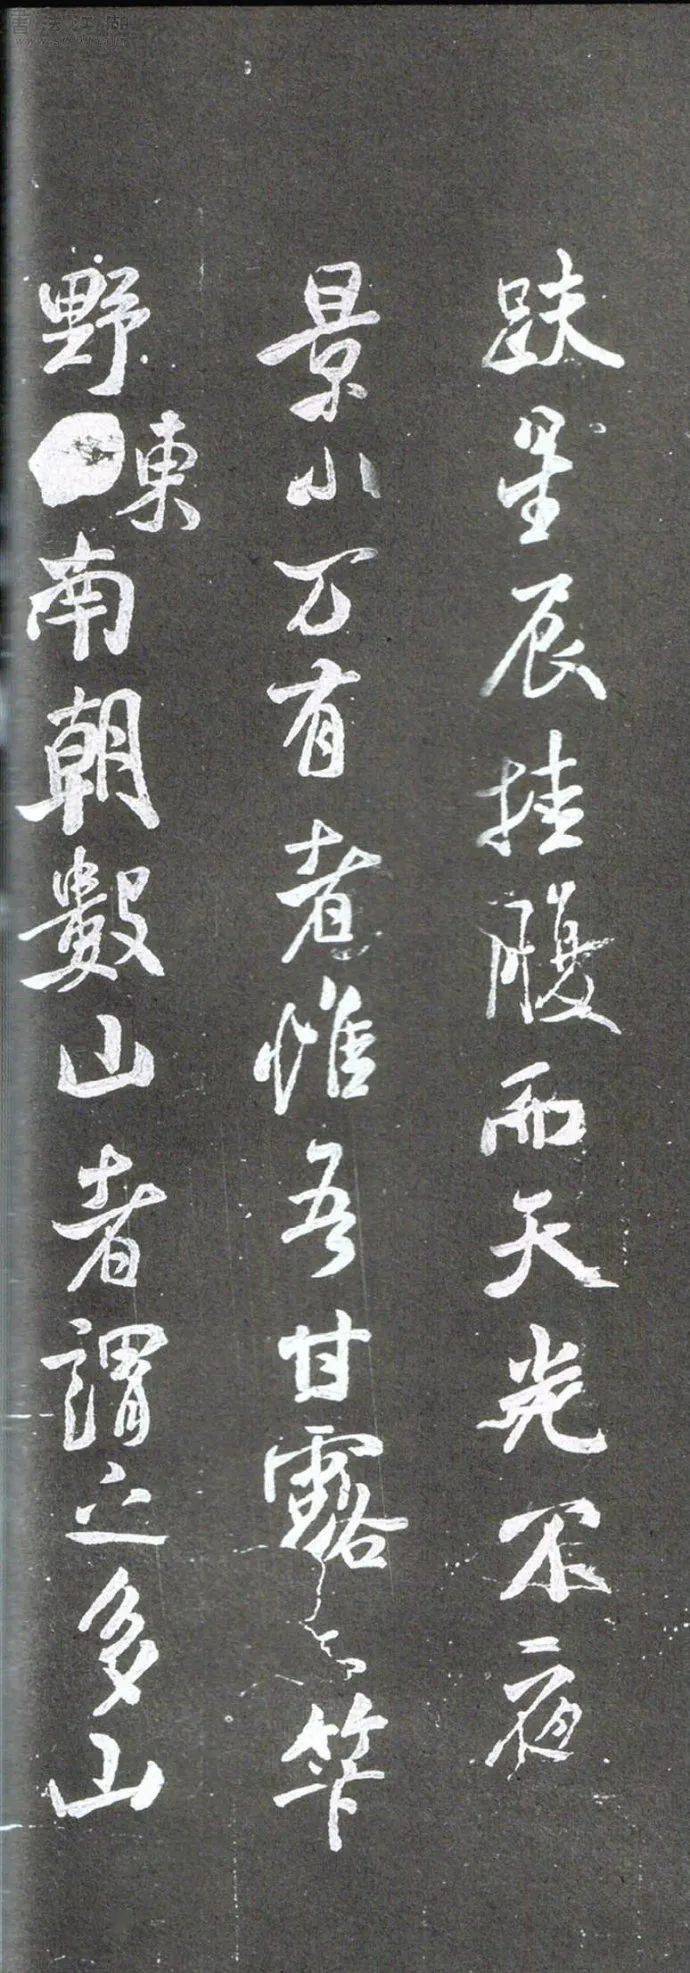 趺星辰挂腹而天光不夜
景小万有者惟吾甘露笇
野東南朝數山者謂之多山
書法江湖